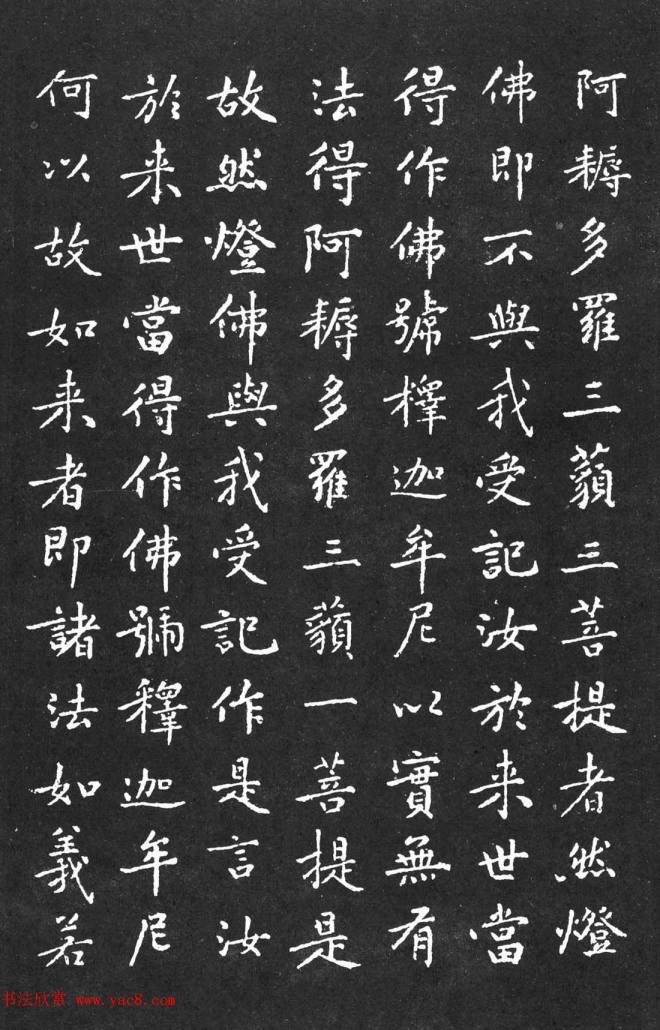 阿耨多羅三藐三菩提者然燈
佛即不與我受記汝於来世當
得作佛號釋迦牟尼以實無有
法得阿耨多羅三藐一菩提是
故然燈佛與我受記作是言汝
於来世當得作佛號釋迦牟尼
何以故如来者即諸法如義若
书法欣赏 www.yac8.com